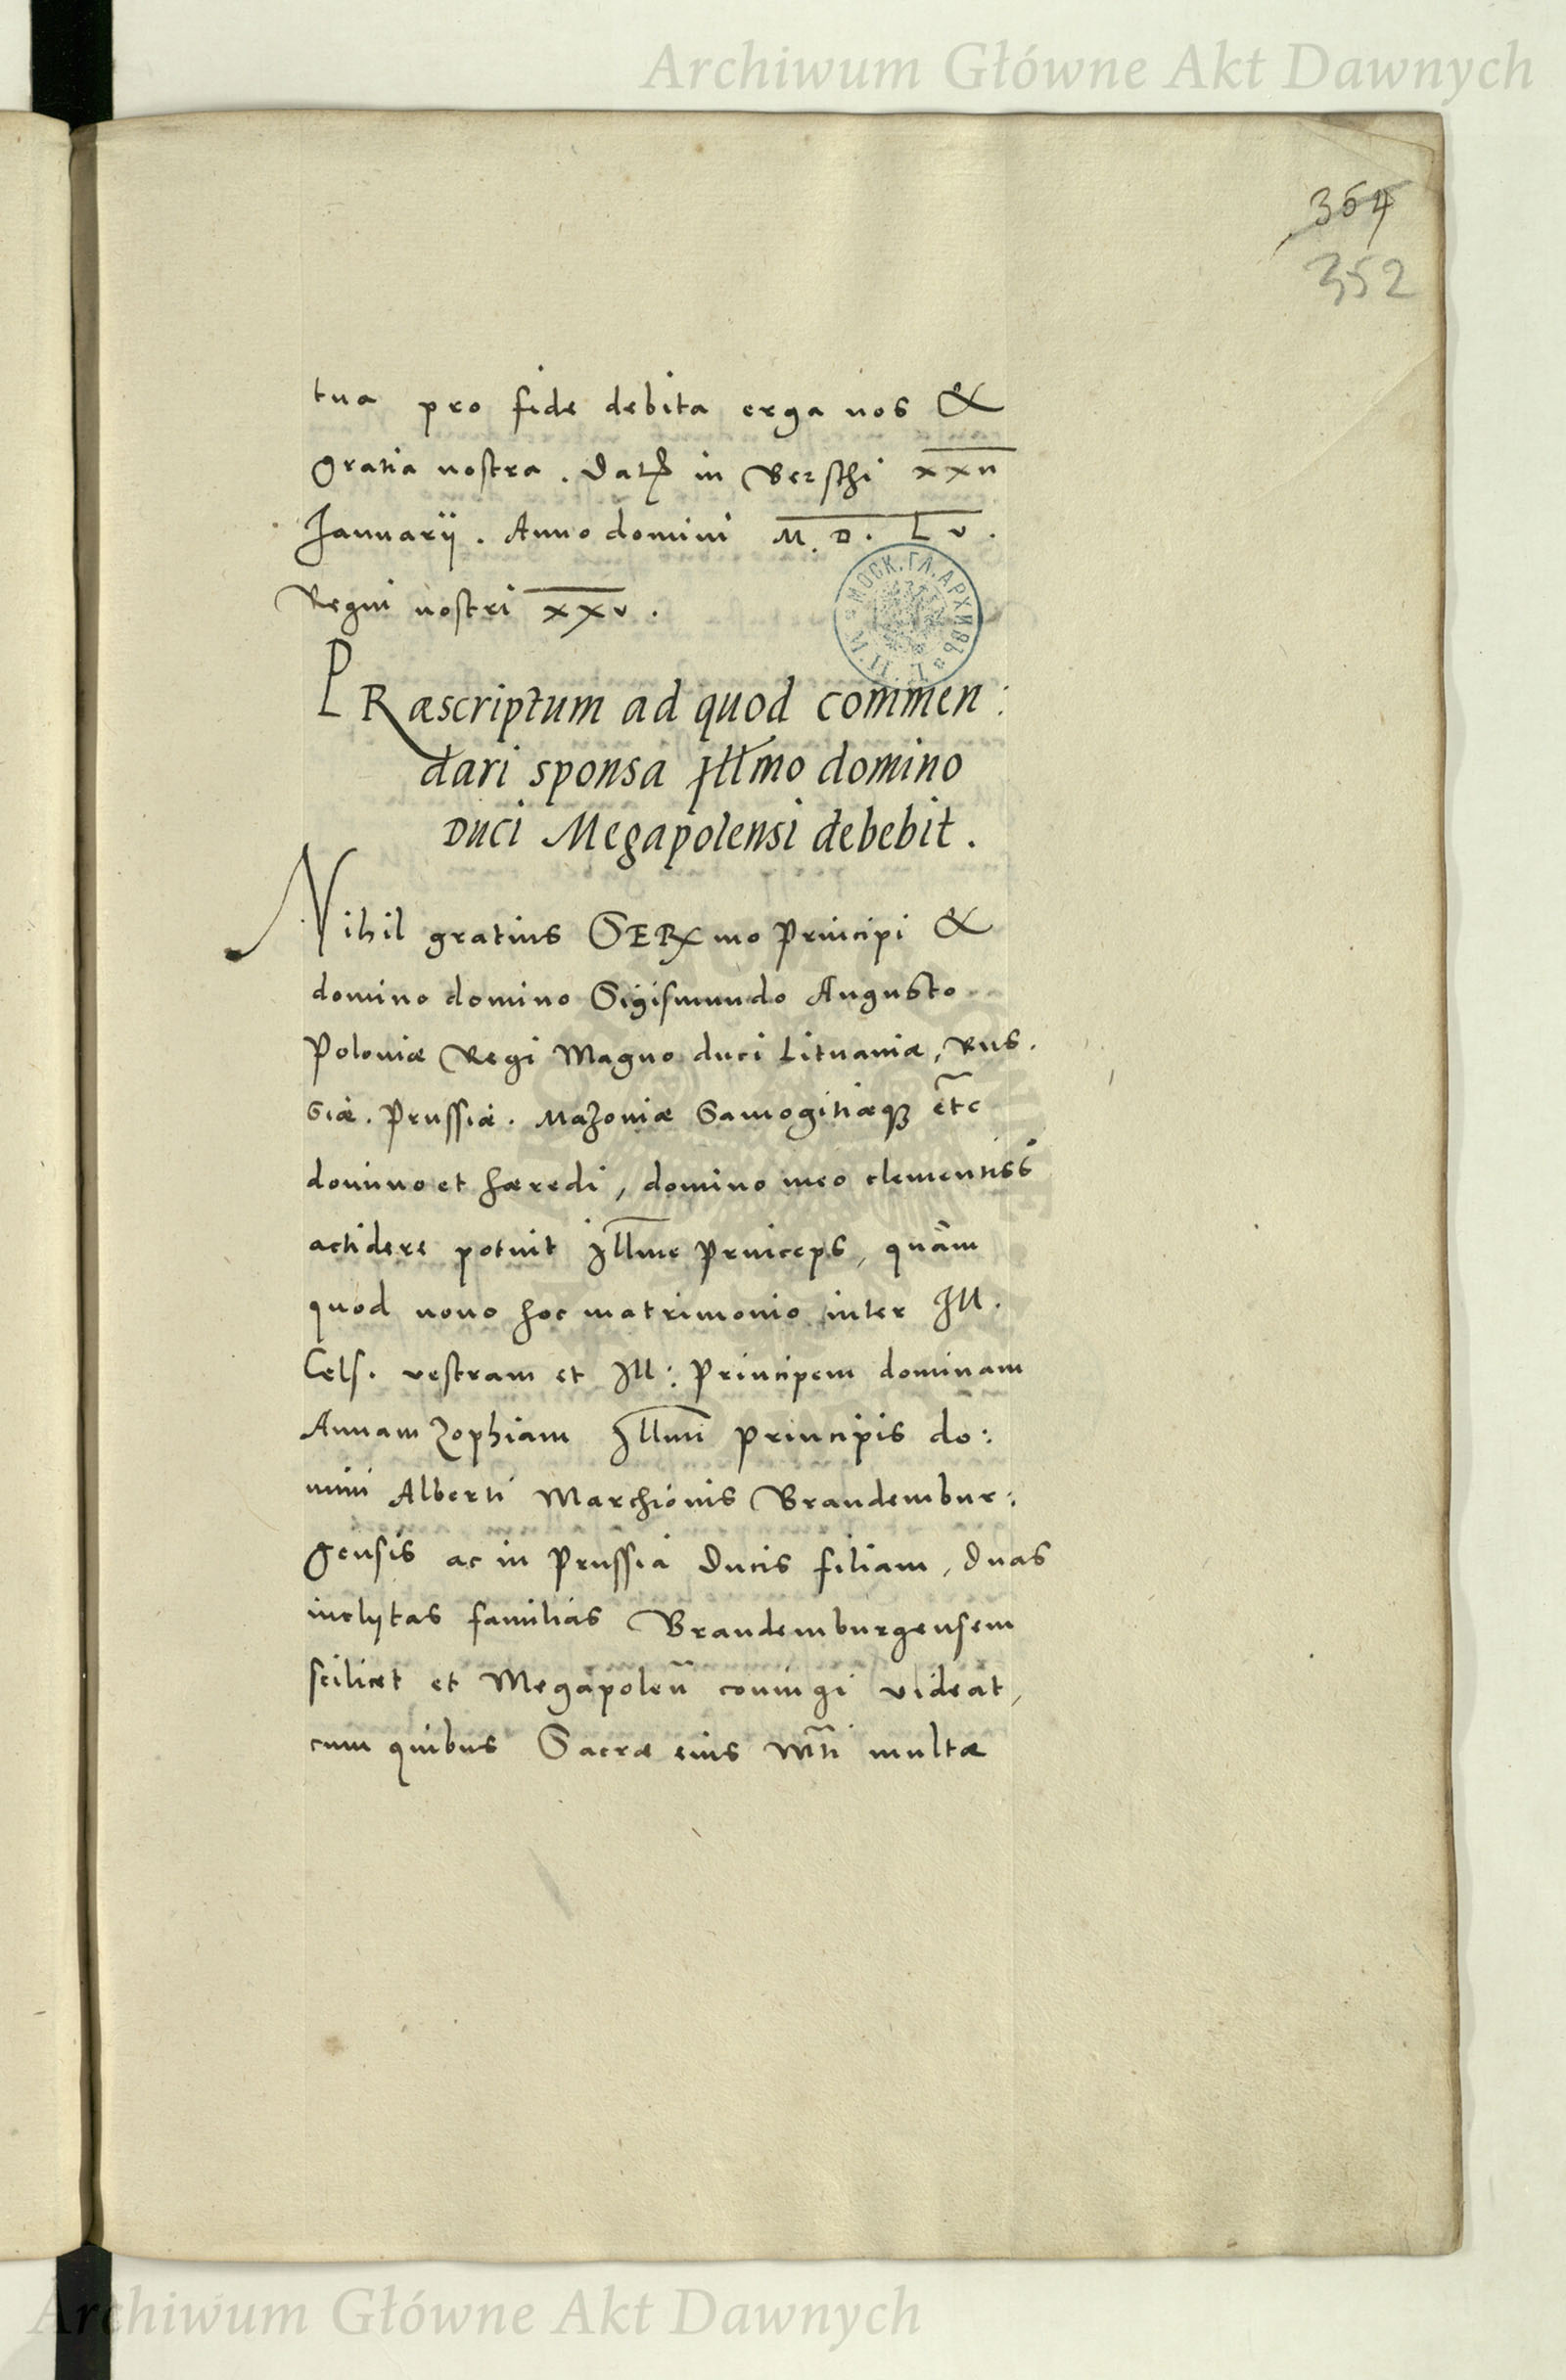 Archiwum Główne Akt Dawnych
364
352
tua pro fide debita erga nos &
gratia nostra. Dat in Berschi XXII
Januarij. Anno domini M. D. LV.
Regni nostri XXV.
PRæscriptum ad quod commen:
dari sponsa Illmo domino
Duci Megapolensi debebit.
Nihil gratius SERmo Principi &
domino domino Sigismundo Augusto
Poloniæ Regi Magno duci Lituaniæ, Rus.
siæ. Prussiæ. Mazoniæ Samogitiæq etc
domino et hæredi, domino meo clementiss
accidere potuit Illme Princeps, quàm
quod nouo hoc matrimonio inter Ill.
Cels. vestram et Ill: Principem dominam
Annam Zophiam Illmi Principis do:
mini Alberti Marchionis Brandembur:
gensis ac in Prussia Ducis filiam, duas
inclytas familias Brandemburgensem
scilicet et Megapolen coniungi videat,
cum quibus Sacræ eius Mti multæ
МОСК. ГЛ. АРХИВЪ
Archiwum Główne Akt Dawnych